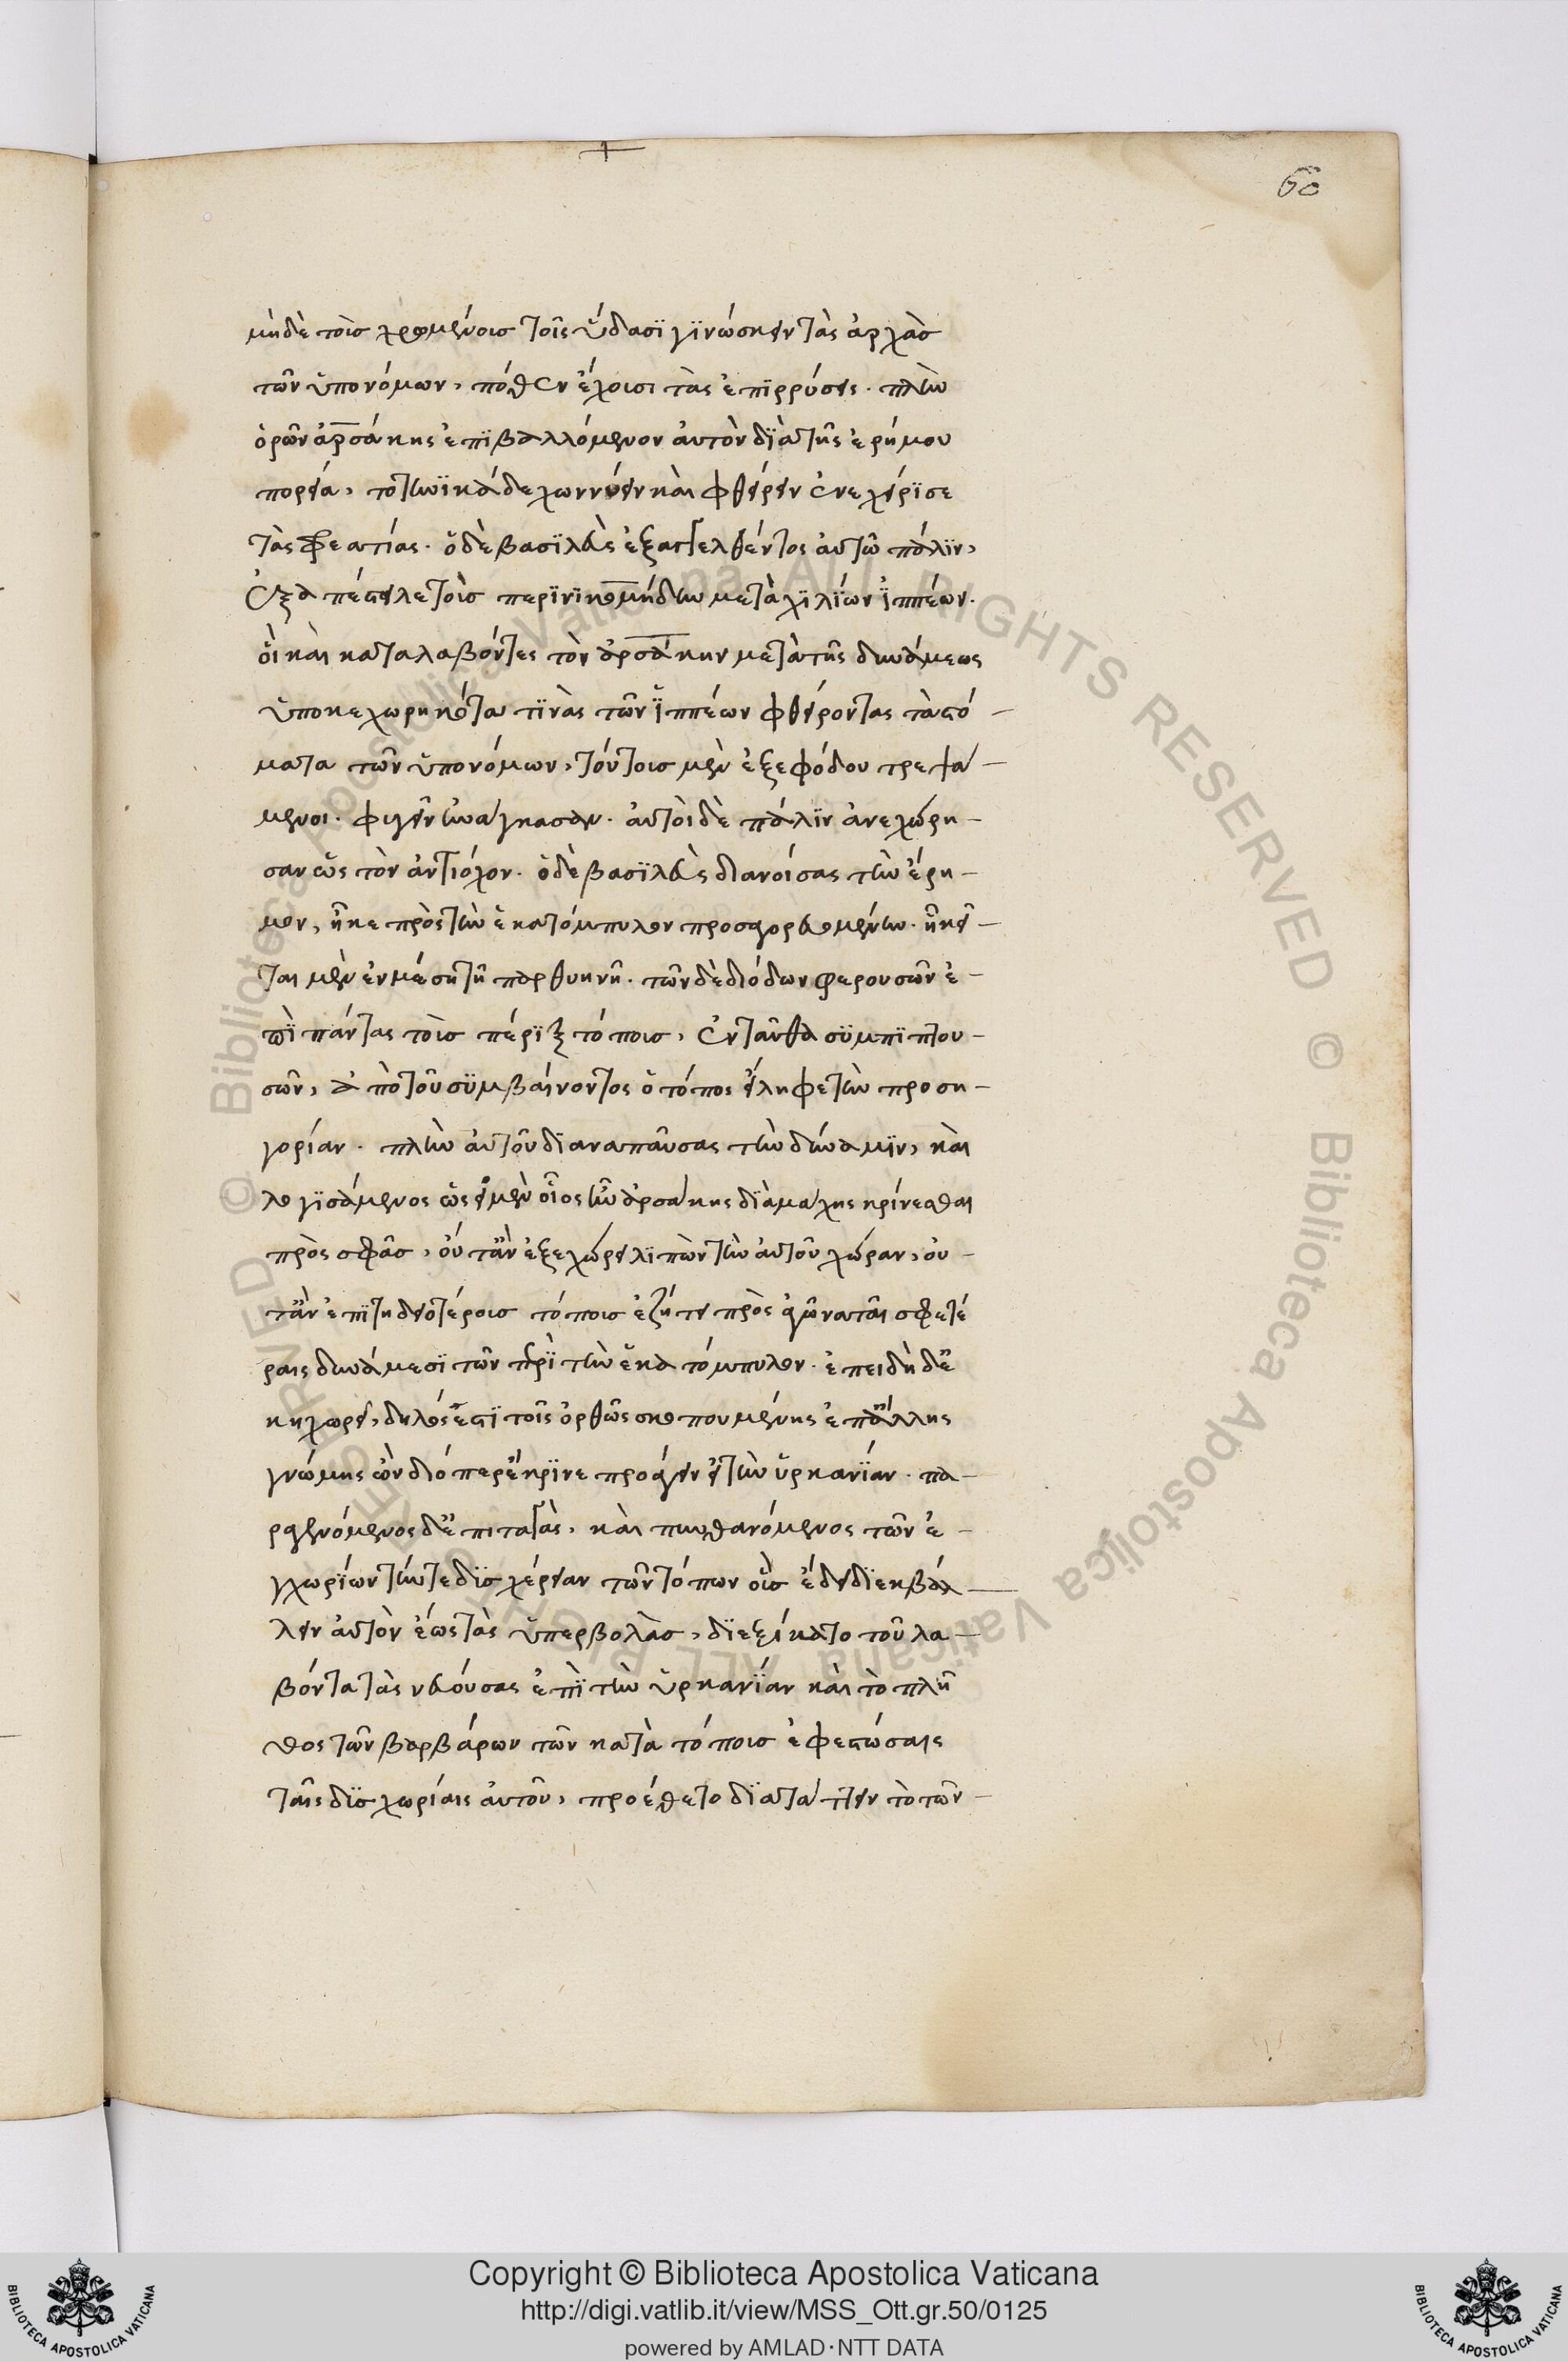 60
μηδὲ τοῖσ χρωμένοισ τοῖς ὕδασϊ γϊνώσκειν τὰς ἀρχὰσ
τῶν ὑπονόμων, πόθεν ἔχουσι τὰς ἐπϊρρύσεις. πλὴν
ὁρῶν ἀρσάκης ἐπϊβαλλόμενον αὐτὸν δϊὰ τῆς ἐρήμου
πορεία, τοτηνϊκάδε χωννύειν καὶ φθείρειν ἐνεχείρϊσε
τὰς φρεατίας. ὁ δὲ βασϊλεὺς ἐξαγγελθέντος αὐτῶ πάλϊν,
ἐξαπέστειλε τοὺσ περϊνϊκομήδην μετὰ χϊλϊων ἱππέων.
οἳ καὶ καταλαβόντες τὸν ἀρσάκην μετὰ τῆς δυνάμεως
ὑποκεχωρηκότα τϊνὰς τῶν ἱππέων φθείροντας τὰ στό-
ματα τῶν ὑπονόμων, τούτουσ μὲν ἐξεφόδου τρεψά-
μενοι. φυγεῖν ἠνάγκασαν. αὐτοὶ δὲ πάλϊν ἀνεχώρη-
σαν ὡς τὸν ἀντιόχον. ὁ δὲ βασϊλεὺς διανοίσας τὴν ἔρη-
μον, ἧκε πρὸς τὴν ἑκατόμπυλον προσαγορευομένην. ἣ κεῖ-
ται μὲν ἐν μέσῃ τῆ παρθυηνῆ. τῶν δὲ διόδων φερουσῶν ἐ-
πϊ πάντας τοὺσ πέρϊξ τόπουσ, ἐνταῦθα συμπϊπτου-
σῶν, ἀπὸ τοῦ συμβαίνοντος ὁ τόπος εἴληφε τὴν προση-
γορίαν. πλὴν αὐτοῦ δϊαναπαύσας τὴν δύναμϊν, καὶ
λογϊσάμενος ὡς εἰ μὲν οἷος ἦν ἀρσάκης δϊὰ μάχης κρίνεσθαι
πρὸς σφᾶσ, οὔτ ἂν ἐξεχώρει λϊπὼν τὴν αὐτοῦ χώραν, οὔ-
τ ἂν ἐπϊτηδειοτέρουσ τόπουσ ἐζήτει πρὸς ἀγῶνα ταῖσ σφετέ
ραις δυνάμεσϊ τῶν περὶ τὴν ἑκατόμπυλον. ἐπειδὴ δ ἐ
κχωρεῖ, δηλός ἐστϊ τοῖς ὀρθῶς σκοπουμένης ἐπ ἄλλης
γνώμης ὢν διόπερ ἔκρϊνε προάγειν εἰς τὴν ὑρκανϊαν. πα-
ραγενόμενος δ ἐπι ταγὰς, καὶ πυνθανόμενος τῶν ἐ-
γχωρϊων τήν τε δυσχέρειαν τῶν τόπων οὓσ ἔδει δϊεκβάλ-
λειν αὐτὸν ἕως τὰς ὑπερβολὰσ,
βόντα τὰς νευούσας ἐπϊ τὴν ὑρκανϊαν καὶ τὸ πλῆ
θος τῶν βαρβάρων τῶν κατὰ τόπουσ ἐφεστώσαις
ταῖς δυσχωρίαις αὐτου, προέθετο δϊατάττειν τὸ τῶν-
© Biblioteca Apostolica Vaticana ALL RIGHTS RESERVED © Biblioteca Apostolica Vaticana ALL RIGHTS RESERVED
Copyright © Biblioteca Apostolica Vaticana
http://digi.vatlib.it/view/MSS_Ott.gr.50/0125
powered by AMLAD·NTT DATA
BIBLIOTECA APOSTOLICA VATICANA
BIBLIOTECA APOSTOLICA VATICANA